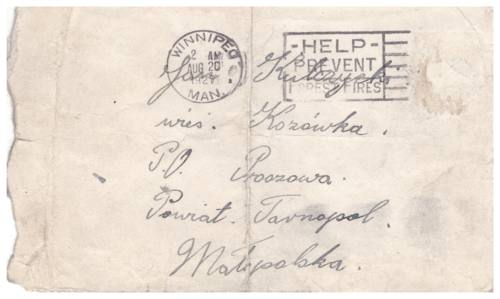 WINNIPEG
2 AM
AUG 20
MAN.
-HELP-
PREVENT
FOREST FIRES
wieś. Kozówka.
P.O. Proszowa.
Powiat. Tarnopol.
Małopolska.